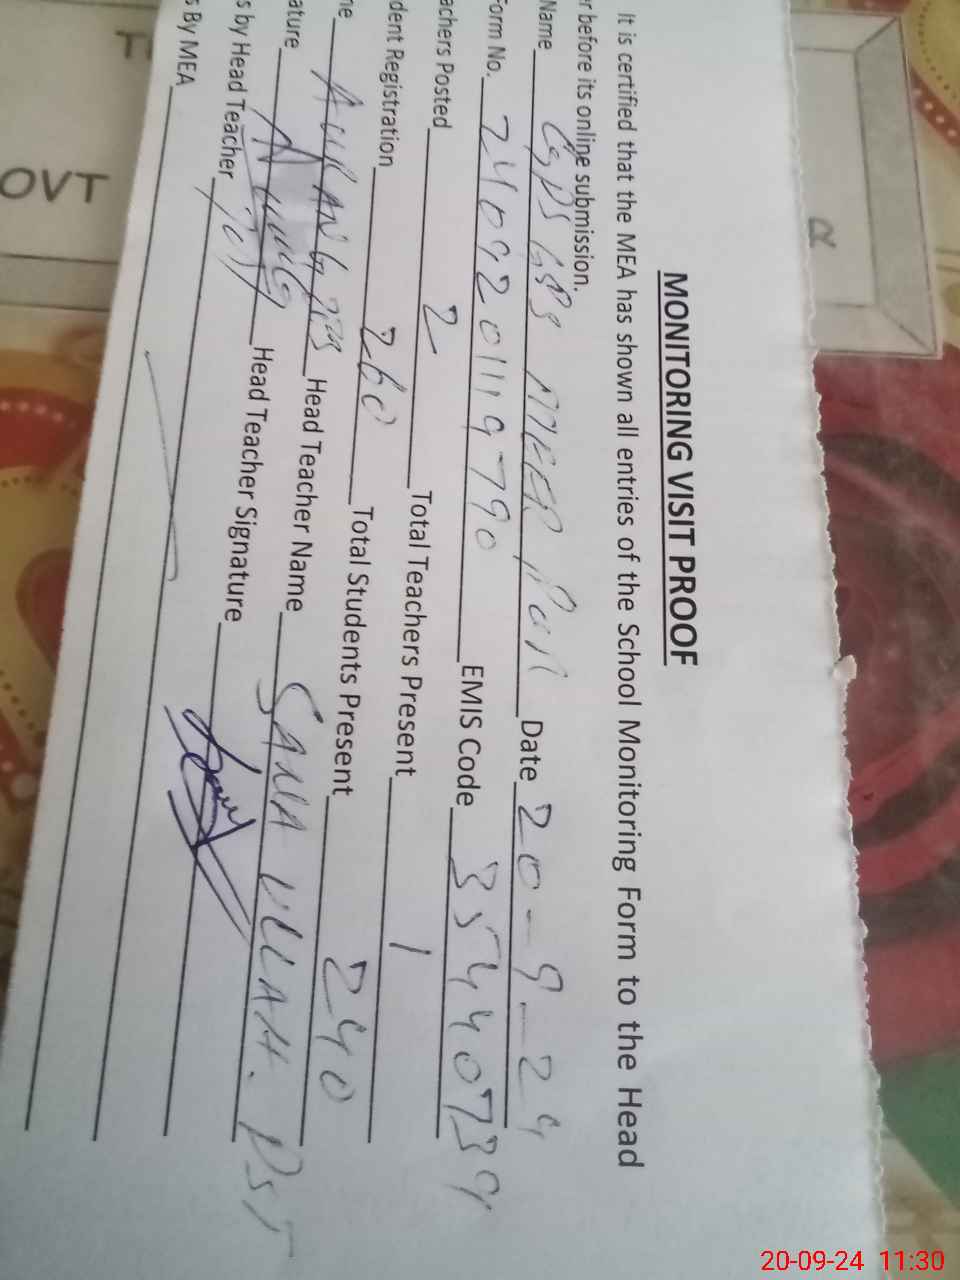 MONITORING VISIT PROOF
It is certified that the MEA has shown all entries of the School Monitoring Form to the Head
r before its online submission.
Name Date 20-9-24
Form No. 240920119790 EMIS Code 35440739
achers Posted 2 Total Teachers Present 1
dent Registration 260 Total Students Present 240
ne Head Teacher Name SANA ULLAH. PST
ature Head Teacher Signature
s by Head Teacher
s By MEA
OVT
20-09-24 11:30